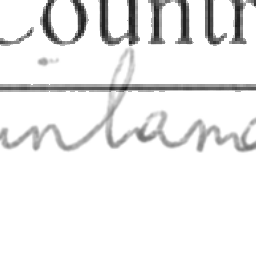 Countr
inland